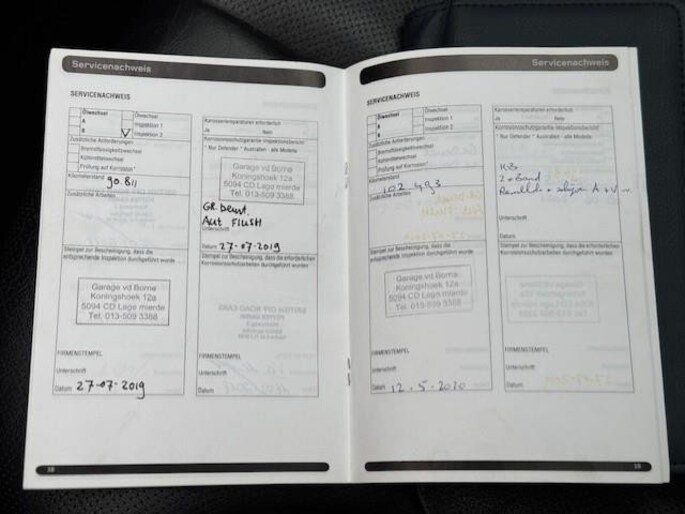 Servicenachweis
SERVICENACHWEIS
Ölwechsel
A
B
Ölwechsel
Inspektion 1
Inspektion 2
Zusätzliche Anforderungen
Bremsflüssigkeitswechsel
Kühlmittelwechsel
Prüfung auf Korrosion*
Kilometerstand
90.811
Zusätzliche Arbeiten
Stempel zur Bescheinigung, dass die
entsprechende Inspektion durchgeführt wurde
Garage vd Borne
Koningshoek 12a
5094 CD Lage mierde
Tel. 013-509 3388
FIRMENSTEMPEL
Unterschrift
Datum 27-07-2019
Korrosionsreparaturen erforderlich
Ja Nein
Korrosionsschutzgarantie-Inspektionsbericht
* Nur Defender * Australien - alle Modelle
Garage vd Borne
Koningshoek 12a
5094 CD Lage mierde
Tel. 013-509 3388
GR. beurt.
Aut FLUSH
Unterschrift
Datum 27-07-2019
Stempel zur Bescheinigung, dass die erforderlichen
Korrosionsschutzarbeiten durchgeführt wurden
FIRMENSTEMPEL
Unterschrift
Datum
18
Servicenachweis
SERVICENACHWEIS
Ölwechsel
A
B
Ölwechsel
Inspektion 1
Inspektion 2
Zusätzliche Anforderungen
Bremsflüssigkeitswechsel
Kühlmittelwechsel
Prüfung auf Korrosion*
Kilometerstand
102.493
Zusätzliche Arbeiten
Stempel zur Bescheinigung, dass die
entsprechende Inspektion durchgeführt wurde
Garage vd Borne
Koningshoek 12a
5094 CD Lage mierde
Tel. 013-509 3388
FIRMENSTEMPEL
Unterschrift
Datum 12.5-2020
Korrosionsreparaturen erforderlich
Ja Nein
Korrosionsschutzgarantie-Inspektionsbericht
* Nur Defender * Australien - alle Modelle
KB
A + V
Unterschrift
Datum
Stempel zur Bescheinigung, dass die erforderlichen
Korrosionsschutzarbeiten durchgeführt wurden
FIRMENSTEMPEL
Unterschrift
Datum
19